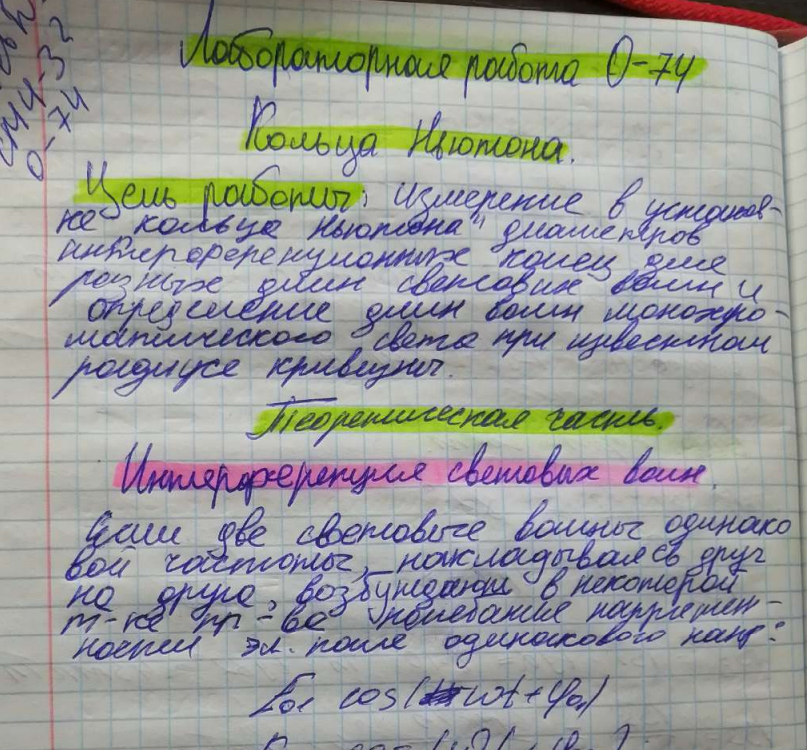 Лабораторная работа О-74
Кольца Ньютона.
Цель работы: измерение в установ-
ке кольца Ньютона" диаметров
интерференционных колец для
разных длин световых волн и
определение длин волн монохро-
матического света при известном
радиусе кривизны.
Теоретическая часть.
Интерференция световых волн.
Если две световые волны одинако
вой частоты, накладываясь друг
на друга, возбуждают в некоторой
т-ке пр-ва колебание напряжен-
ности эл. поля одинакового напр:
E₀₁ cos(ωt+φ₀₁)
О-74